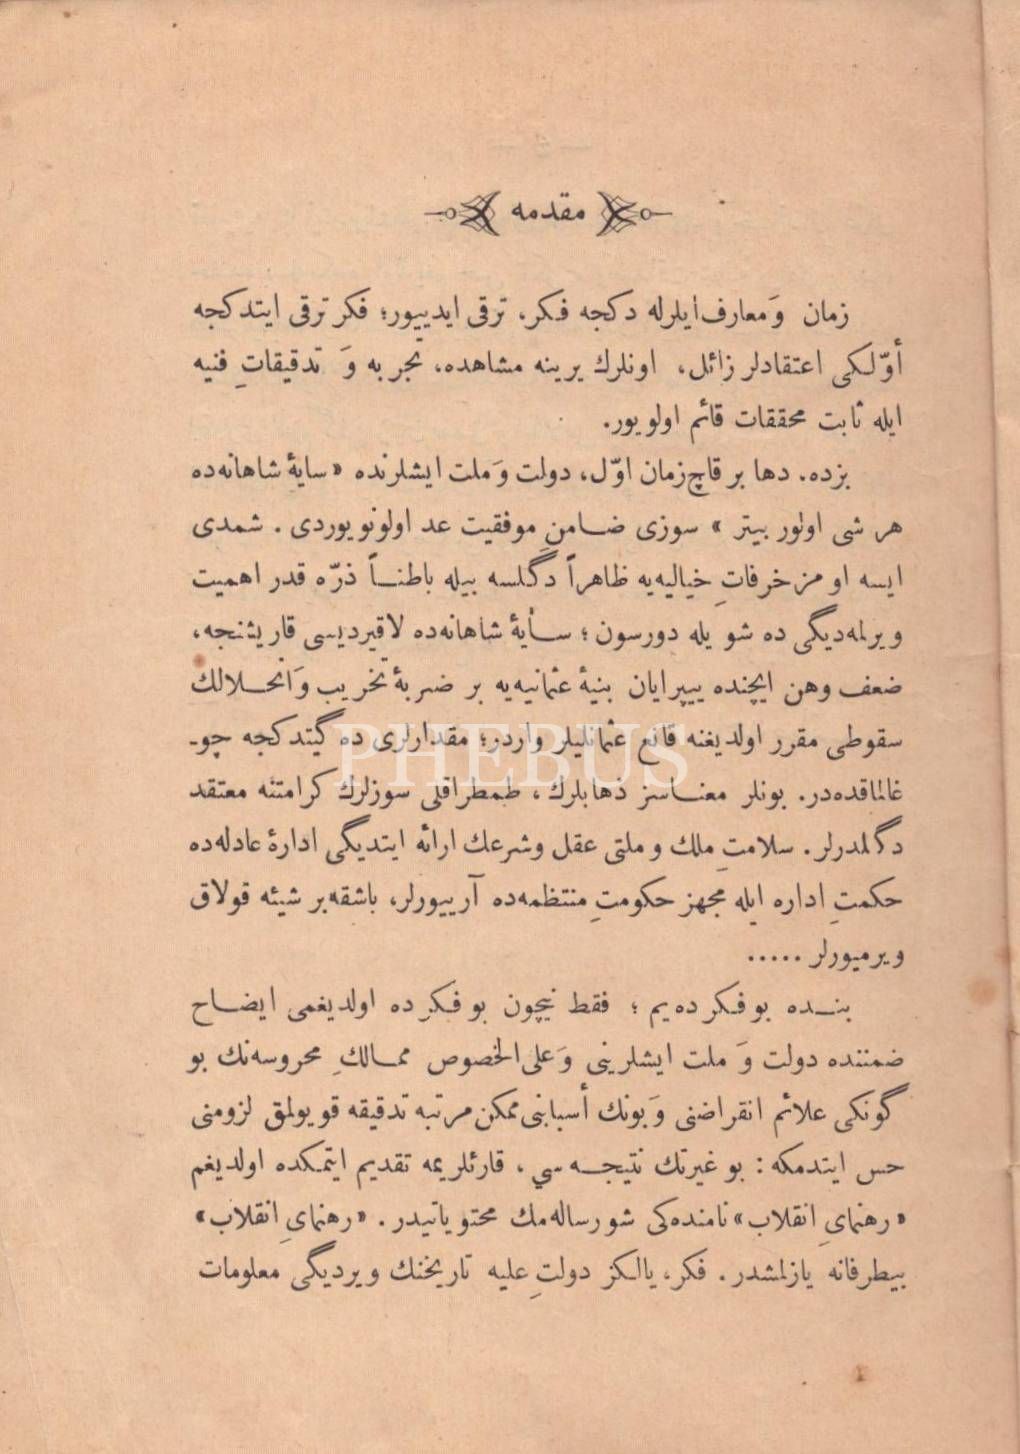 مقدمه
زمان وَمعارف ایلرله دكجه فكر، ترقی ایدییور؛ فكر ترقی ایتدكجه
أوّلكی اعتقادلر زائل، اونلرك یرینه مشاهده، تجربه وَ تدقیقاتِ فنیه
ایله ثابت محققات قائم اولویور.
بزده. دها بر قاچ زمان اوّل، دولت وَملت ایشلرنده «سایۀ شاهانه‌ده
هر شی اولور بیتر» سوزی ضامنِ موفقیت عد اولونویوردی. شمدی
ایسه او مزخرفاتِ خیالیه‌یه ظاهراً دگلسه بیله باطناً ذرّه قدر اهمیت
ویرلمه‌دیگی ده شویله دورسون؛ سایۀ شاهانه‌ده لاقیردیسی قاریشنجه،
ضعف وهن ایچنده ییپرایان بنیۀ عثمانیه‌یه بر ضربۀ تخریب وَانحلالك
سقوطی مقرر اولدیغنه قانع عثمانلیلر واردر؛ مقدارلری ده گیتدكجه چو-
غالماقده‌در. بونلر معناسز دهابلرك، طمطراقلی سوزلرك كرامتنه معتقد
دگلمدرلر. سلامتِ ملك وملتی عقل وشرعك ارائه ایتدیگی ادارۀ عادله‌ده
حكمتِ اداره ایله مجهز حكومتِ منتظمه‌ده آرییورلر، باشقه بر شیئه قولاق
ویرمیورلر .....
بنده بو فكرده‌یم؛ فقط نیچون بو فكرده اولدیغمی ایضاح
ضمننده دولت وَ ملت ایشلرینی وَعلی الخصوص ممالكِ محروسه‌نك بو
گونكی علائم انقراضنی وَبونك أسبابنی ممكن مرتبه تدقیقه قویولمق لزومنی
حس ایتدمكه: بو غیرتك نتیجه سي، قارئلریمه تقدیم ایتمكده اولدیغم
«رهنمایِ انقلاب» نامنده‌كی شو رساله‌مك محتویاتیدر. «رهنمایِ انقلاب»
بیطرفانه یازلمشدر. فكر، یالكز دولتِ علیه تاریخنك ویردیگی معلومات
PHEBUS